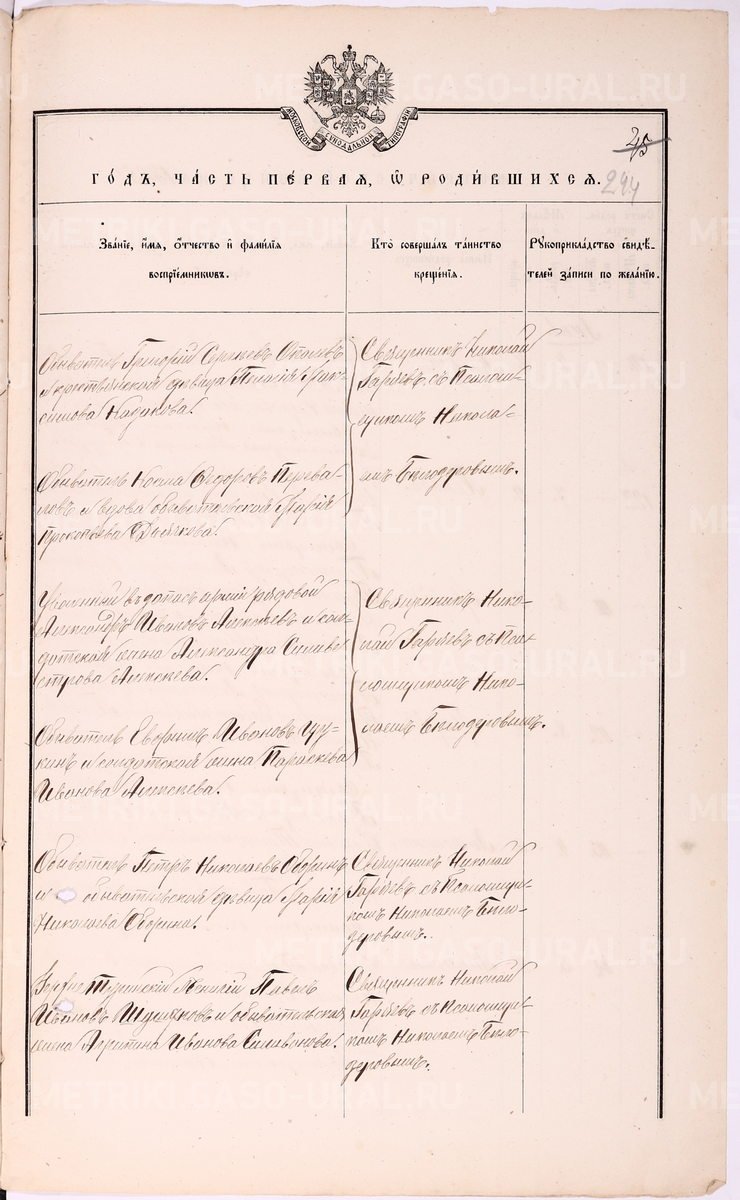 МОСКОВСКОЙ СѴНОДАЛЬНОЙ ТИПОГРАФІИ
25
294
ГО́ДЪ, ЧА́СТЬ ПЕ́РВАЯ, Ѡ҆ РОДИ́ВШИХСѦ.
Зва́нїе, и҆́мѧ, ѻ҆́тчество и҆ фами́лїѧ
воспрїе́мникѡвъ.
Кто̀ соверша́лъ та́инство
креще́нїѧ.
Рꙋкоприкла́дство свидѣ́-
телей за́писи по жела́нїю.
Обыватель Григорій Сергѣевъ
и крестьянская дѣвица Пелагія Мак-
симова Кадукова.
Священникъ Николай
Гаряевъ съ Псаломщи-
комъ Никола-
емъ Бѣлодѣровымъ.
Обыватель Косма Ѳедоровъ Перева-
ловъ и вдова обывательская Марія
Прокопьева Дьячкова.
Уволенный въ запасъ арміи рядовой
Александръ Ивановъ Алексѣевъ и сол-
датская жена Александра Сильве-
строва Алексѣева.
Священникъ Нико-
лай Гаряевъ съ Пса-
ломщикомъ Нико-
лаемъ Бѣлодѣровымъ.
Обыватель Евгений Ивановъ Щу-
кинъ и солдатская жена Параскева
Иванова Алексѣева.
Обыватель Петръ Николаевъ Оборинъ
и обывательская дѣвица Марія
Николаева Оборина.
Священникъ Николай
Гаряевъ съ Псаломщи-
комъ Николаемъ Бѣло-
дѣровымъ.
Верхне Туринскій Павелъ
Ивановъ и обывательская
жена Иванова Селиванова.
Священникъ Николай
Гаряевъ съ Псаломщи-
комъ Николаемъ Бѣло-
дѣровымъ.
METRIKI.GASO-URAL.RU